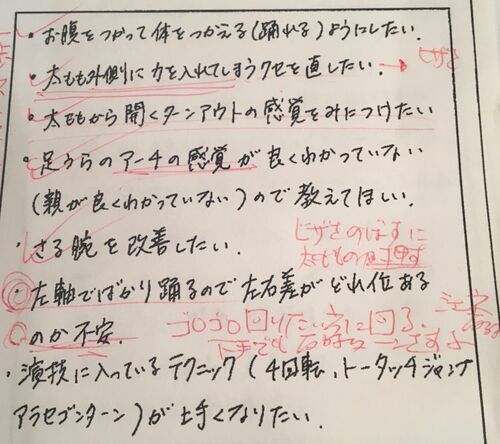 ・お腹をつかって体をつかえる(踊れる)ようにしたい。
・太もも外側に力を入れてしまうクセを直したい。→ヒザを
・太ももから開くターンアウトの感覚をみにつけたい
・足うらのアーチの感覚が良くわかっていない
(親が良くわかっていない)ので教えてほしい。
・さる腕を改善したい。
ヒザをのばすに
太ももの
・左軸でばかり踊るので左右差がどれ位ある
のか不安。
ゴロゴロ回りたい方に回る、
下手でも
・演技に入っているテクニック(4回転、トータッチジャンプ
アラセゴンターン)が上手くなりたい。